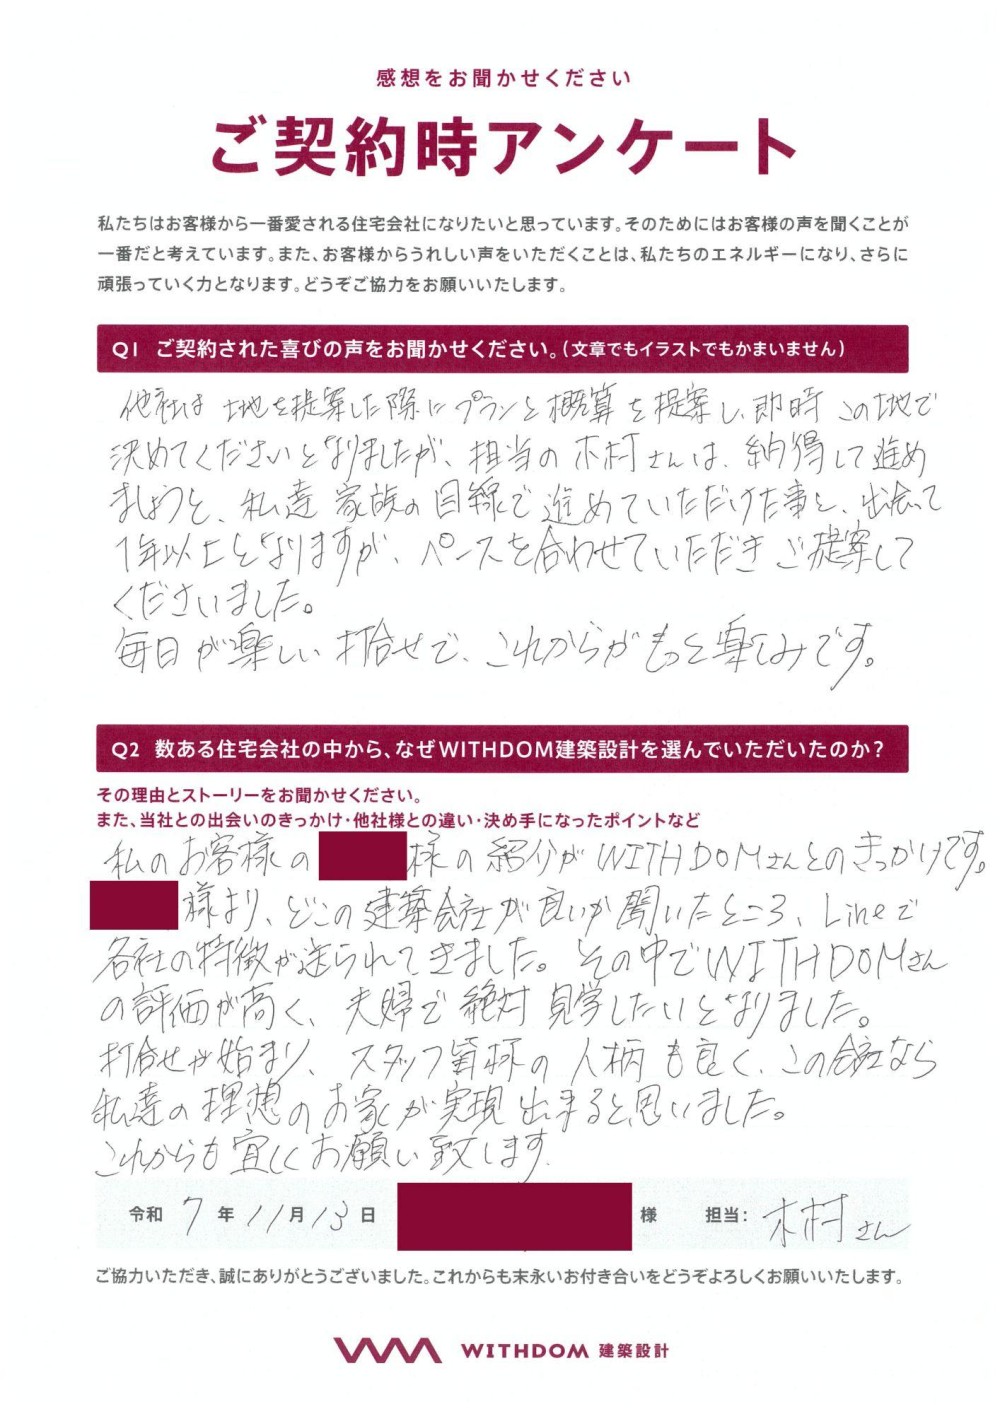 感想をお聞かせください
ご契約時アンケート
私たちはお客様から一番愛される住宅会社になりたいと思っています。そのためにはお客様の声を聞くことが
一番だと考えています。また、お客様からうれしい声をいただくことは、私たちのエネルギーになり、さらに
頑張っていく力となります。どうぞご協力をお願いいたします。
Q1 ご契約された喜びの声をお聞かせください。(文章でもイラストでもかまいません)
他社は 土地を提案した際に プランと概算を提案し、即時 この土地で
決めてくださいとなりましたが、担当の木村さんは、納得して進め
ましょうと、私達家族の目線で進めていただけた事と、出会って
1年以上となりますが、ペースを合わせていただきご提案して
くださいました。
毎日が楽しい打合せで、これからがもっと楽しみです。
Q2 数ある住宅会社の中から、なぜWITHDOM建築設計を選んでいただいたのか?
その理由とストーリーをお聞かせください。
また、当社との出会いのきっかけ・他社様との違い・決め手になったポイントなど
私のお客様の 様の紹介がWITHDOMさんとのきっかけです。
様より、どこの建築会社が良いか聞いたところ、Lineで
各社の特徴が送られてきました。その中でWITHDOMさん
の評価が高く、夫婦で絶対見学したいとなりました。
打合せが始まり、スタッフ皆様の人柄も良く、この会社なら
私達の理想のお家が実現出来ると思いました。
これからも宜しくお願い致します。
令和 7年 11月 13日 様 担当: 木村さん
ご協力いただき、誠にありがとうございました。これからも末永いお付き合いをどうぞよろしくお願いいたします。
WITHDOM 建築設計